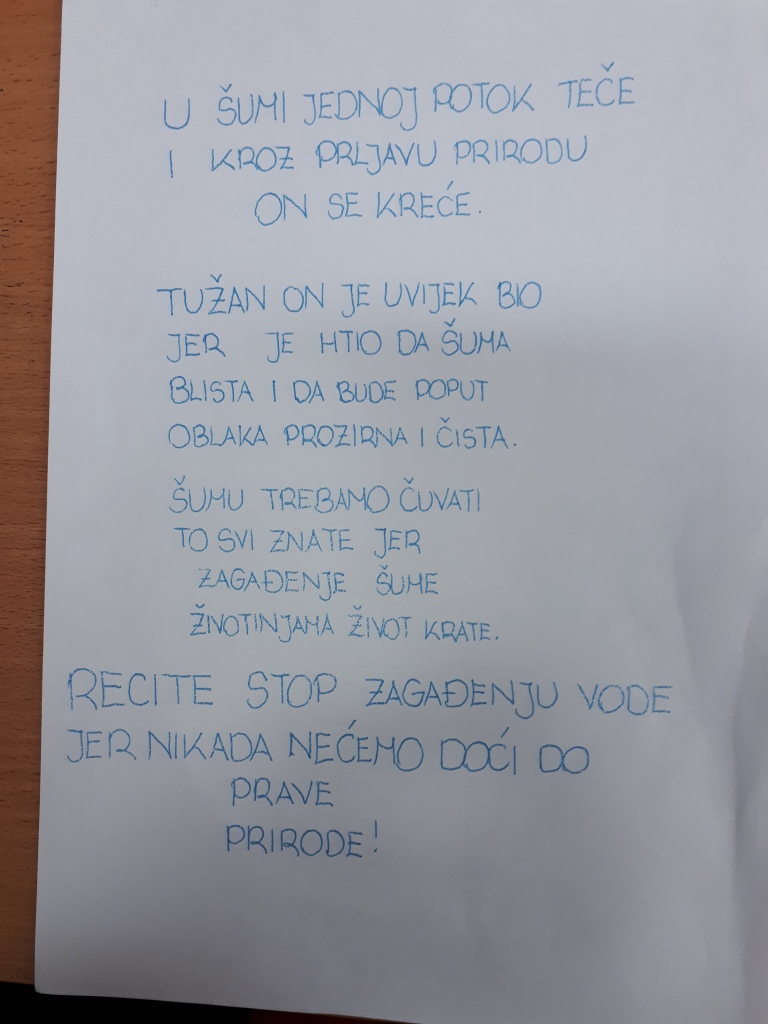 U ŠUMI JEDNOJ POTOK TEČE
I KROZ PRLJAVU PRIRODU
ON SE KREĆE.
TUŽAN ON JE UVIJEK BIO
JER JE HTIO DA ŠUMA
BLISTA I DA BUDE POPUT
OBLAKA PROZIRNA I ČISTA.
ŠUMU TREBAMO ČUVATI
TO SVI ZNATE JER
ZAGAĐENJE ŠUME
ŽIVOTINJAMA ŽIVOT KRATE.
RECITE STOP ZAGAĐENJU VODE
JER NIKADA NEĆEMO DOĆI DO
PRAVE
PRIRODE!